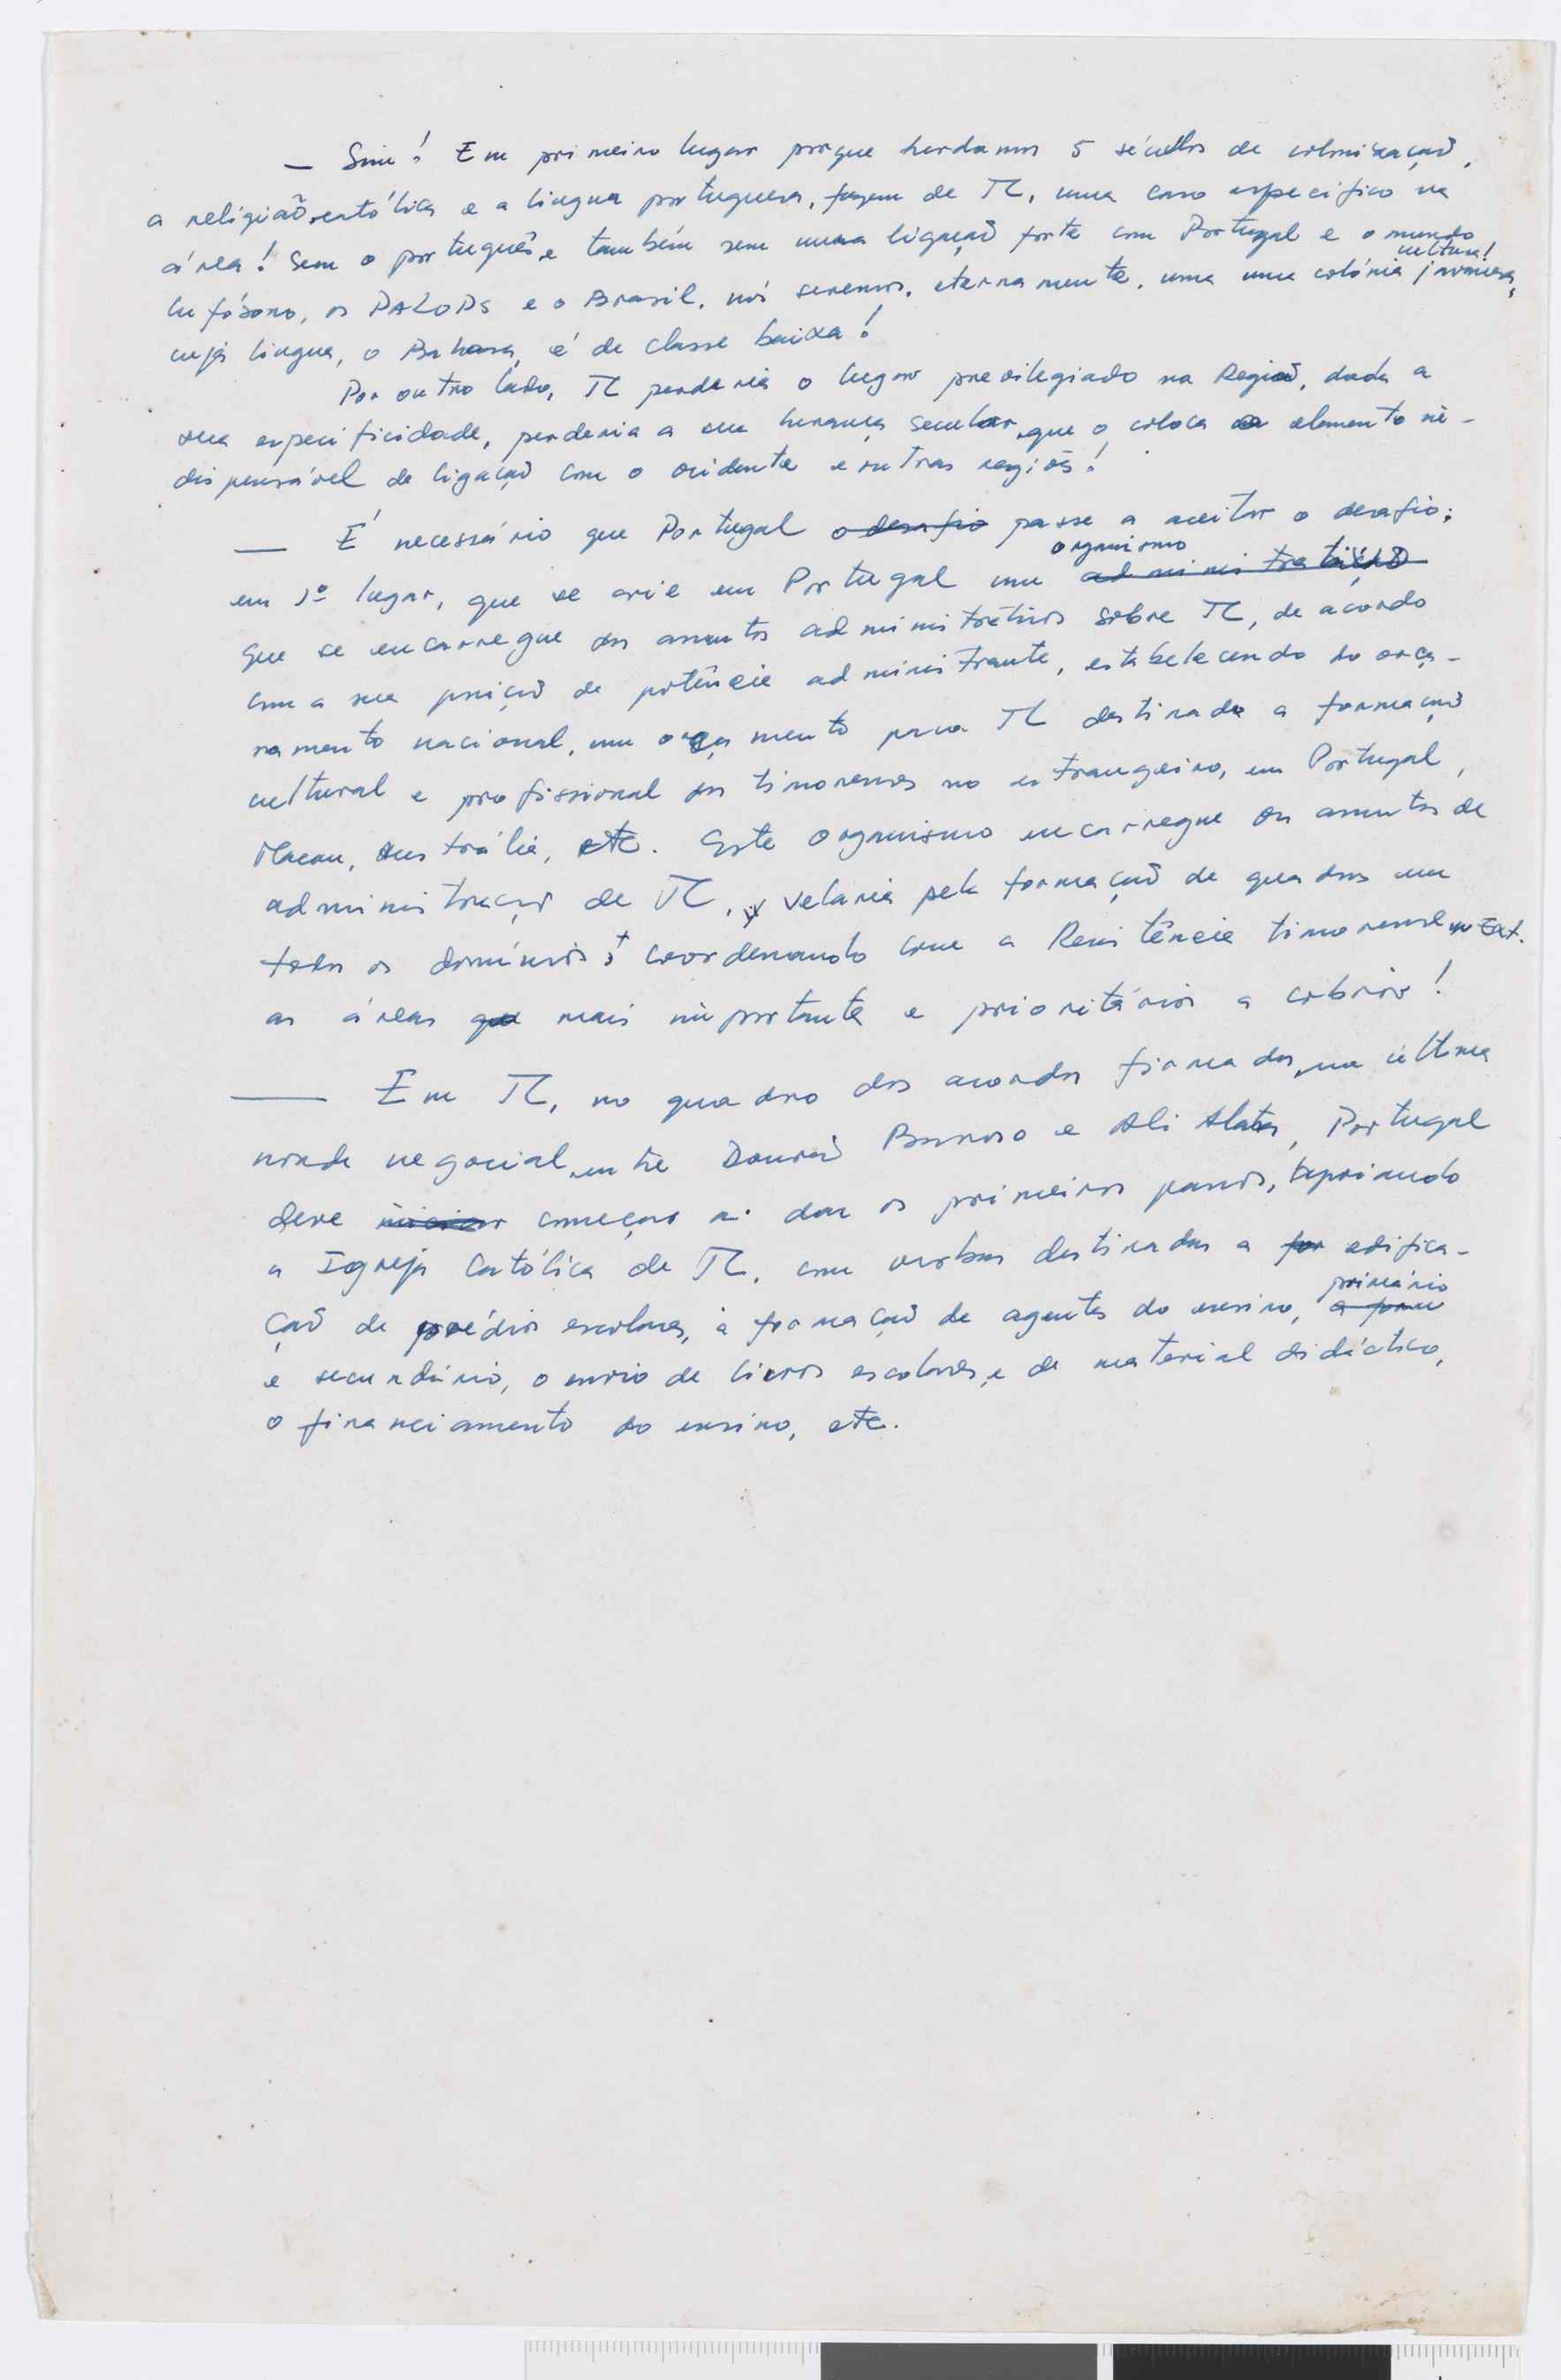 — Sim! Em primeiro lugar porque herdamos 5 séculos de colonização,
a religião católica e a lingua portuguesa, fazem de TL, uma caso especifico na
área! Sem o português e também sem uma ligação forte com Portugal e o mundo
lusófono, os PALOPs e o Brasil, nós seremos, eternamente, uma uma colónia cultural javanesa,
cuja lingua, o Bahasa, é de classe baixa!
Por outro lado, TL perderia o lugar previlegiado na Região, dada a
sua especificidade, perderia a sua herança secular que o coloca elemento in-
dispensável de ligação com o ocidente e outras regiões!
— É necessário que Portugal o desafio passe a aceitar o desafio:
em 1º lugar, que se crie em Portugal um organismo administração
que se encarregue dos assuntos administrativos sobre TL, de acordo
com a sua posição de potência administrante, estabelecendo no orça-
namento nacional, um orçamento para TL destinado a formação
cultural e profissional dos timorenses no estrangeiro, em Portugal,
Macau, Austrália, etc. Este organismo encarregue dos assuntos de
administração de TL, velaria pela formação de quadros em
todos os domínios, coordenando com a Resistência timorense no Ext.
as áreas que mais importante e prioritários a cobrir!
— Em TL, no quadro dos acordos firmados na última
ronda negocial entre Durão Barroso e Ali Alatas, Portugal
deve iniciar começar a dar os primeiros passos, apoiando
a Igreja Católica de TL, com verbas destinadas a for edifica-
ção de prédios escolares, à formação de agentes do ensino, primário a form
e secundário, o envio de livros escolares e de material didáctico,
o financiamento do ensino, etc.